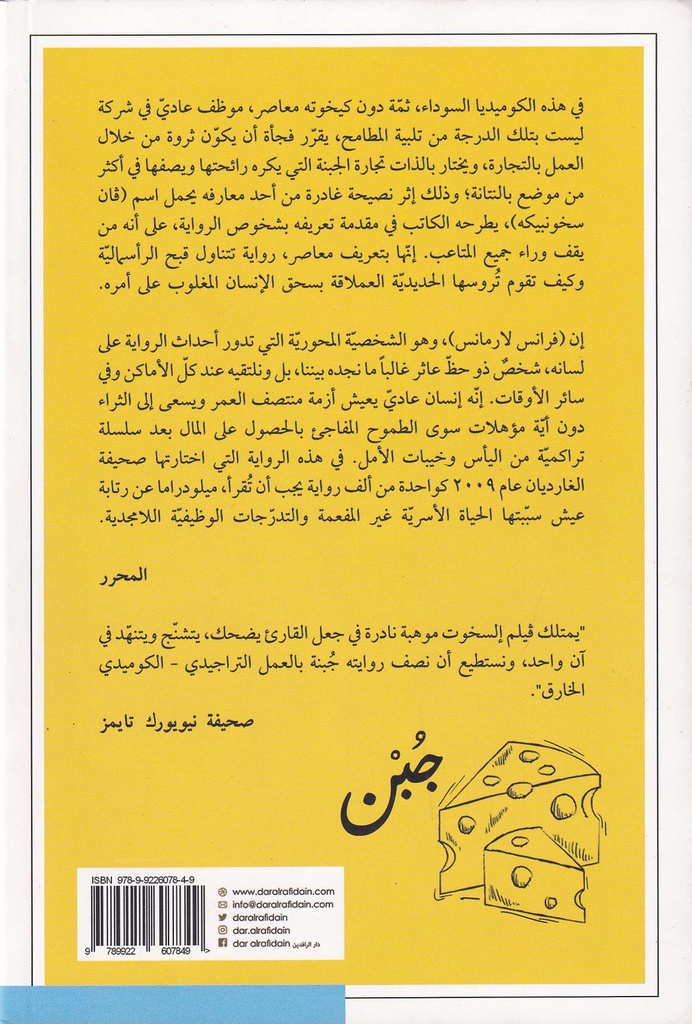 في هذه الكوميديا السوداء، ثمّة دون كيخوته معاصر، موظف عاديّ في شركة
ليست بتلك الدرجة من تلبية المطامح، يقرّر فجأة أن يكوّن ثروة من خلال
العمل بالتجارة، ويختار بالذات تجارة الجبنة التي يكره رائحتها ويصفها في أكثر
من موضع بالنتانة؛ وذلك إثر نصيحة غادرة من أحد معارفه يحمل اسم (ڤان
سخونبيكه)، يطرحه الكاتب في مقدمة تعريفه بشخوص الرواية، على أنه من
يقف وراء جميع المتاعب. إنّها بتعريف معاصر، رواية تتناول قبح الرأسماليّة
وكيف تقوم تُروسها الحديديّة العملاقة بسحق الإنسان المغلوب على أمره.
إن (فرانس لارمانس)، وهو الشخصيّة المحوريّة التي تدور أحداث الرواية على
لسانه، شخصٌ ذو حظّ عاثر غالباً ما نجده بيننا، بل ونلتقيه عند كلّ الأماكن وفي
سائر الأوقات. إنّه إنسان عاديّ يعيش أزمة منتصف العمر ويسعى إلى الثراء
دون أيّة مؤهلات سوى الطموح المفاجئ بالحصول على المال بعد سلسلة
تراكميّة من اليأس وخيبات الأمل. في هذه الرواية التي اختارتها صحيفة
الغارديان عام ٢٠٠٩ كواحدة من ألف رواية يجب أن تُقرأ، ميلودراما عن رتابة
عيش سبّبتها الحياة الأسريّة غير المفعمة والتدرّجات الوظيفيّة اللامجدية.
المحرر
"يمتلك ڤيلم إلسخوت موهبة نادرة في جعل القارئ يضحك، يتشنّج ويتنهّد في
آن واحد، ونستطيع أن نصف روايته جُبنة بالعمل التراجيدي - الكوميدي
الخارق".
صحيفة نيويورك تايمز
جُبْن
ISBN 978-9-9226078-4-9
9 789922 607849 >
www.daralrafidain.com
info@daralrafidain.com
daralrafidain
dar.alrafidain
dar alrafidain دار الرافدين